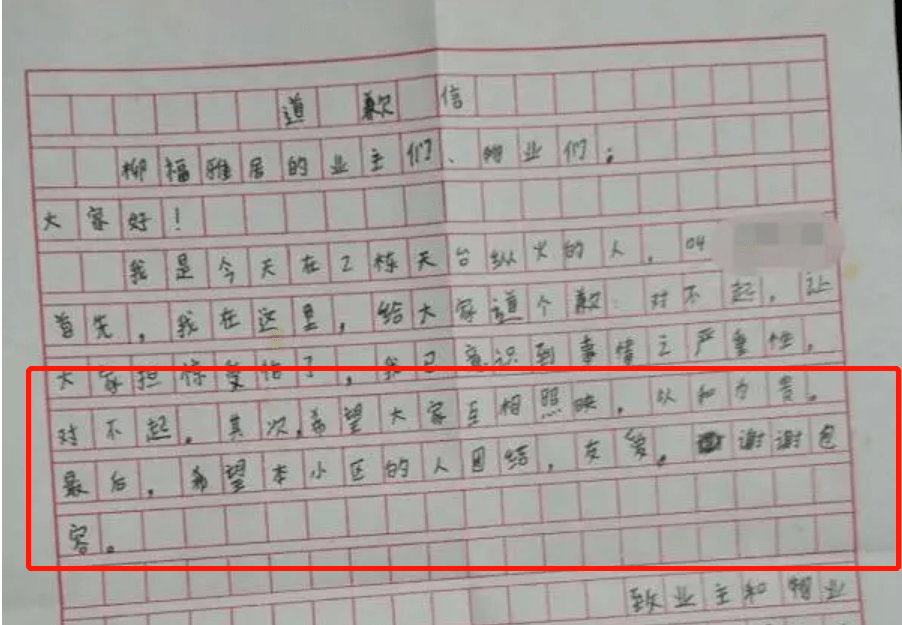 道歉信
柳福雅居的业主们、物业们:
大家好!
我是今天在2栋天台纵火的人,04
首先,我在这里,给大家道个歉:对不起,让
大家担惊受怕了,我已意识到事情之严重性,
对不起。其次,希望大家互相照映,以和为贵。
最后,希望本小区的人团结,友爱。谢谢包
容。
致业主和物业